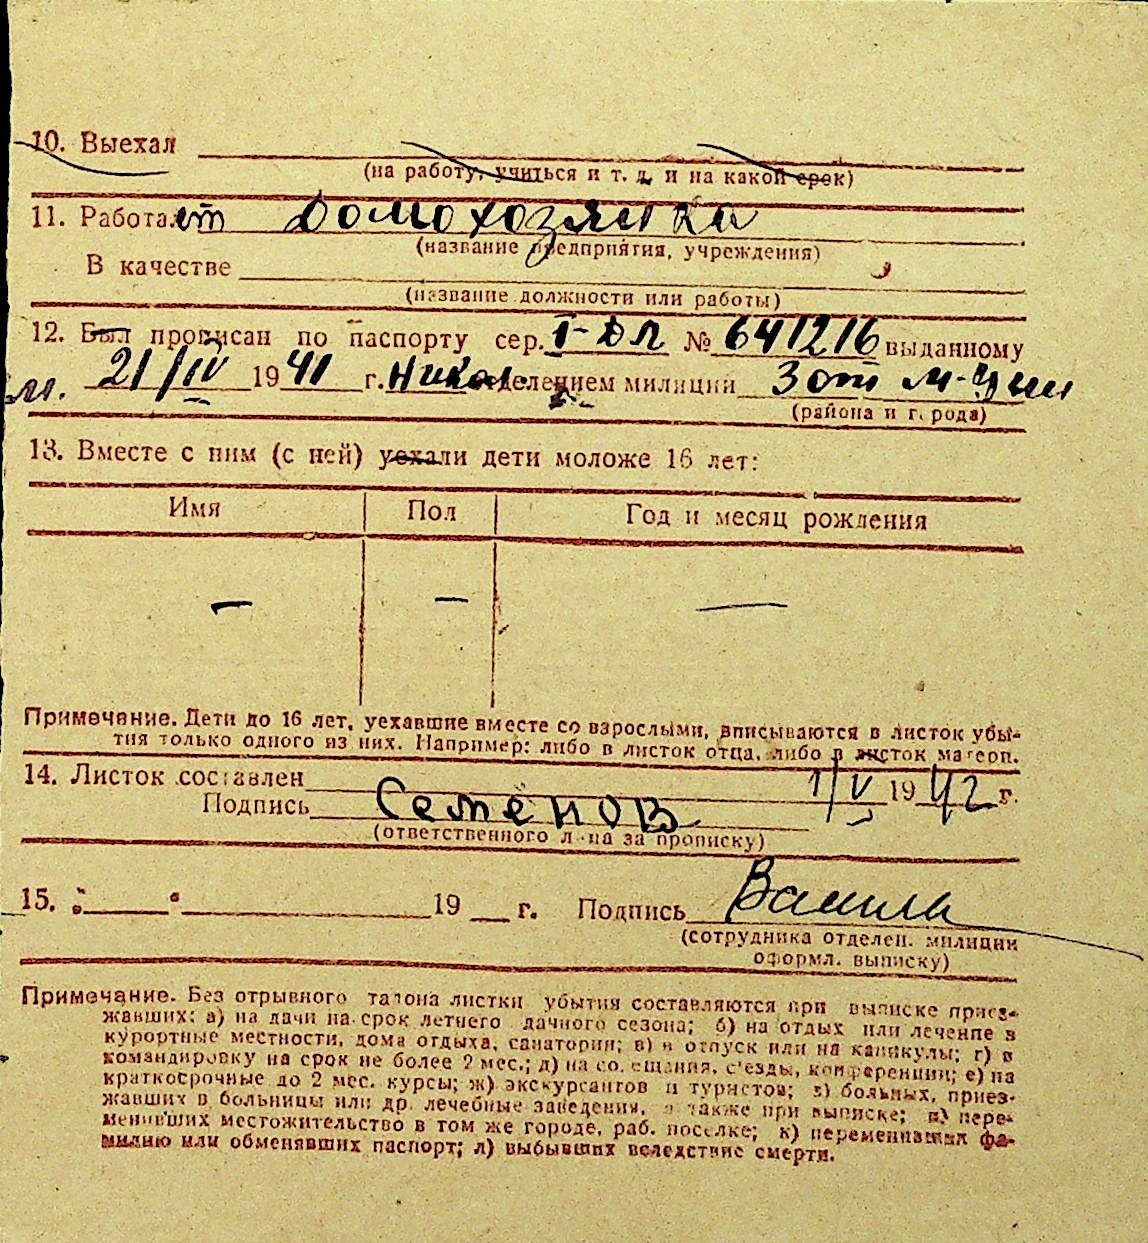 10. Выехал
(на работу, учиться и т. д. и на какой срок)
11. Работает Домохозяйка
(название предприятия, учреждения)
В качестве
(название должности или работы)
12. Был прописан по паспорту сер. I-ДЛ № 641216 выданному
21/IV 1941 г. Никол. отделением милиции 3 от м-ции
(района и города)
13. Вместе с ним (с ней) уехали дети моложе 16 лет:
Имя Пол Год и месяц рождения
— — —
Примечание. Дети до 16 лет, уехавшие вместе со взрослыми, вписываются в листок убы-
тия только одного из них. Например: либо в листок отца, либо в листок матери.
14. Листок составлен 1/V 1942 г.
Подпись Семёнов
(ответственного лица за прописку)
15. „ “ 19 г. Подпись
(сотрудника отделен. милиции
оформл. выписку)
Примечание. Без отрывного талона листки убытия составляются при выписке приез-
жавших: а) на дачи на срок летнего дачного сезона; б) на отдых или лечение в
курортные местности, дома отдыха, санатории; в) в отпуск или на каникулы; г) в
командировку на срок не более 2 мес.; д) на совещания, съезды, конференции; е) на
краткосрочные до 2 мес. курсы; ж) экскурсантов и туристов; з) больных, приез-
жавших в больницы или др. лечебные заведения, а также при выписке; и) пере-
менивших местожительство в том же городе, раб. поселке; к) переменивших фа-
милию или обменявших паспорт; л) выбывших вследствие смерти.